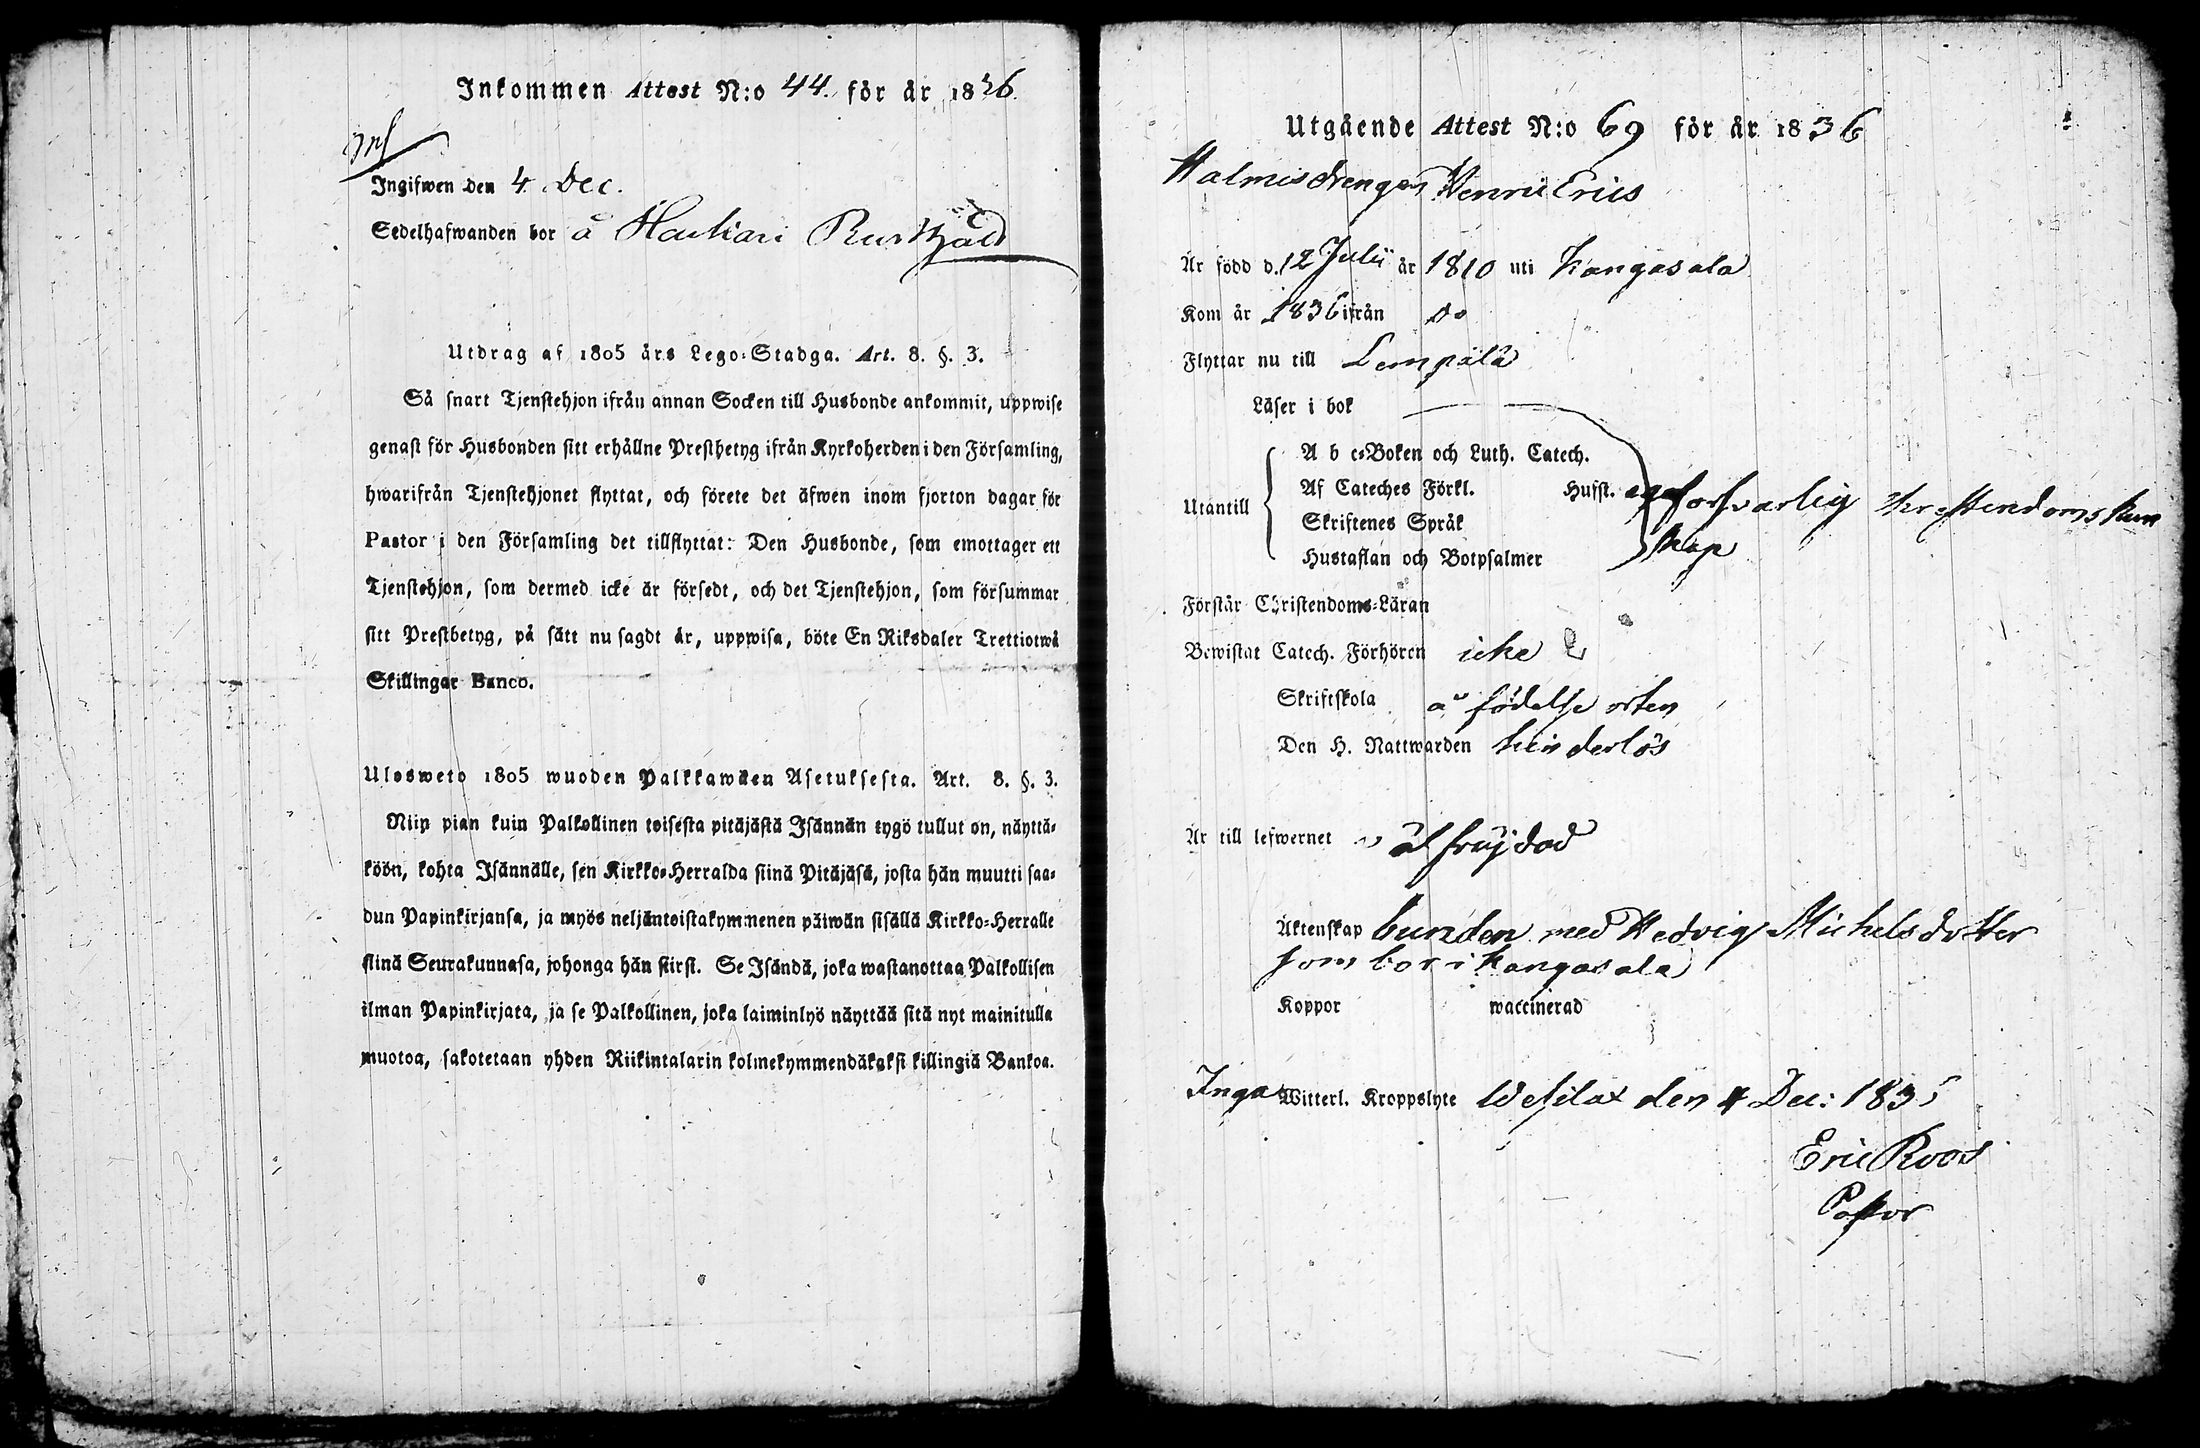 Inkommen Attest N:o 44. för år 1836.
Ingifwen den 4. Dec.
Sedelhafwanden bor å
Utdrag af 1805 års Lego-Stadga. Art. 8. §. 3.
Så snart Tjenstehjon ifrån annan Socken till Husbonde ankommit, uppwise
genast för Husbonden sitt erhållne Prestbetyg ifrån Kyrkoherden i den Församling,
hwarifrån Tjenstehjonet flyttat, och förete det äfwen inom fjorton dagar för
Pastor i den Församling det tillflyttat: Den Husbonde, som emottager ett
Tjenstehjon, som dermed icke är försedt, och det Tjenstehjon, som försummar
sitt Prestbetyg, på sätt nu sagdt är, uppwisa, böte En Riksdaler Trettiotwå
Skillingar Banco.
Ulosweto 1805 wuoden Palkkawäen Asetuksesta. Art. 8. §. 3.
Niin pian kuin Palkollinen toisesta pitäjästä Isännän tygö tullut on, näyttä-
köön, kohta Isännälle, sen Kirkko-Herralda siinä Pitäjäsä, josta hän muutti saa-
dun Papinkirjansa, ja myös neljäntoistakymmenen päiwän sisällä Kirkko-Herralle
siinä Seurakunnasa, johonga hän siirsi. Se Isändä, joka wastanottaa Palkollisen
ilman Papinkirjata, ja se Palkollinen, joka laiminlyö näyttää sitä nyt mainitulla
muotoa, sakotetaan yhden Riikintalarin kolmekymmendäkaksi killingiä Bankoa.
Utgående Attest N:o 69 för år 1836
Henric Erics
Är född d. 12 Julii år 1810 uti Kangasala
Kom år 1836 ifrån do
Flyttar nu till Lempälä
Läser i bok
Utantill
A b c-Boken och Luth. Catech.
Af Cateches Förkl. Husf. eger försvarlig kristendoms kun
Skriftenes Språk
Hustaflan och Botpsalmer skap
Förstår Christendoms-Läran
Bewistat Catech. Förhören icke
Skriftskola å födelse orten
Den H. Nattwarden hinderlös
Är till lefwernet
Äktenskap bunden med Hedvig Michelsdotter
som bor i Kangasala
Koppor waccinerad
Inga Witterl. Kroppslyte Wesilax den 4 Dec: 183
Eric Roos
Pastor